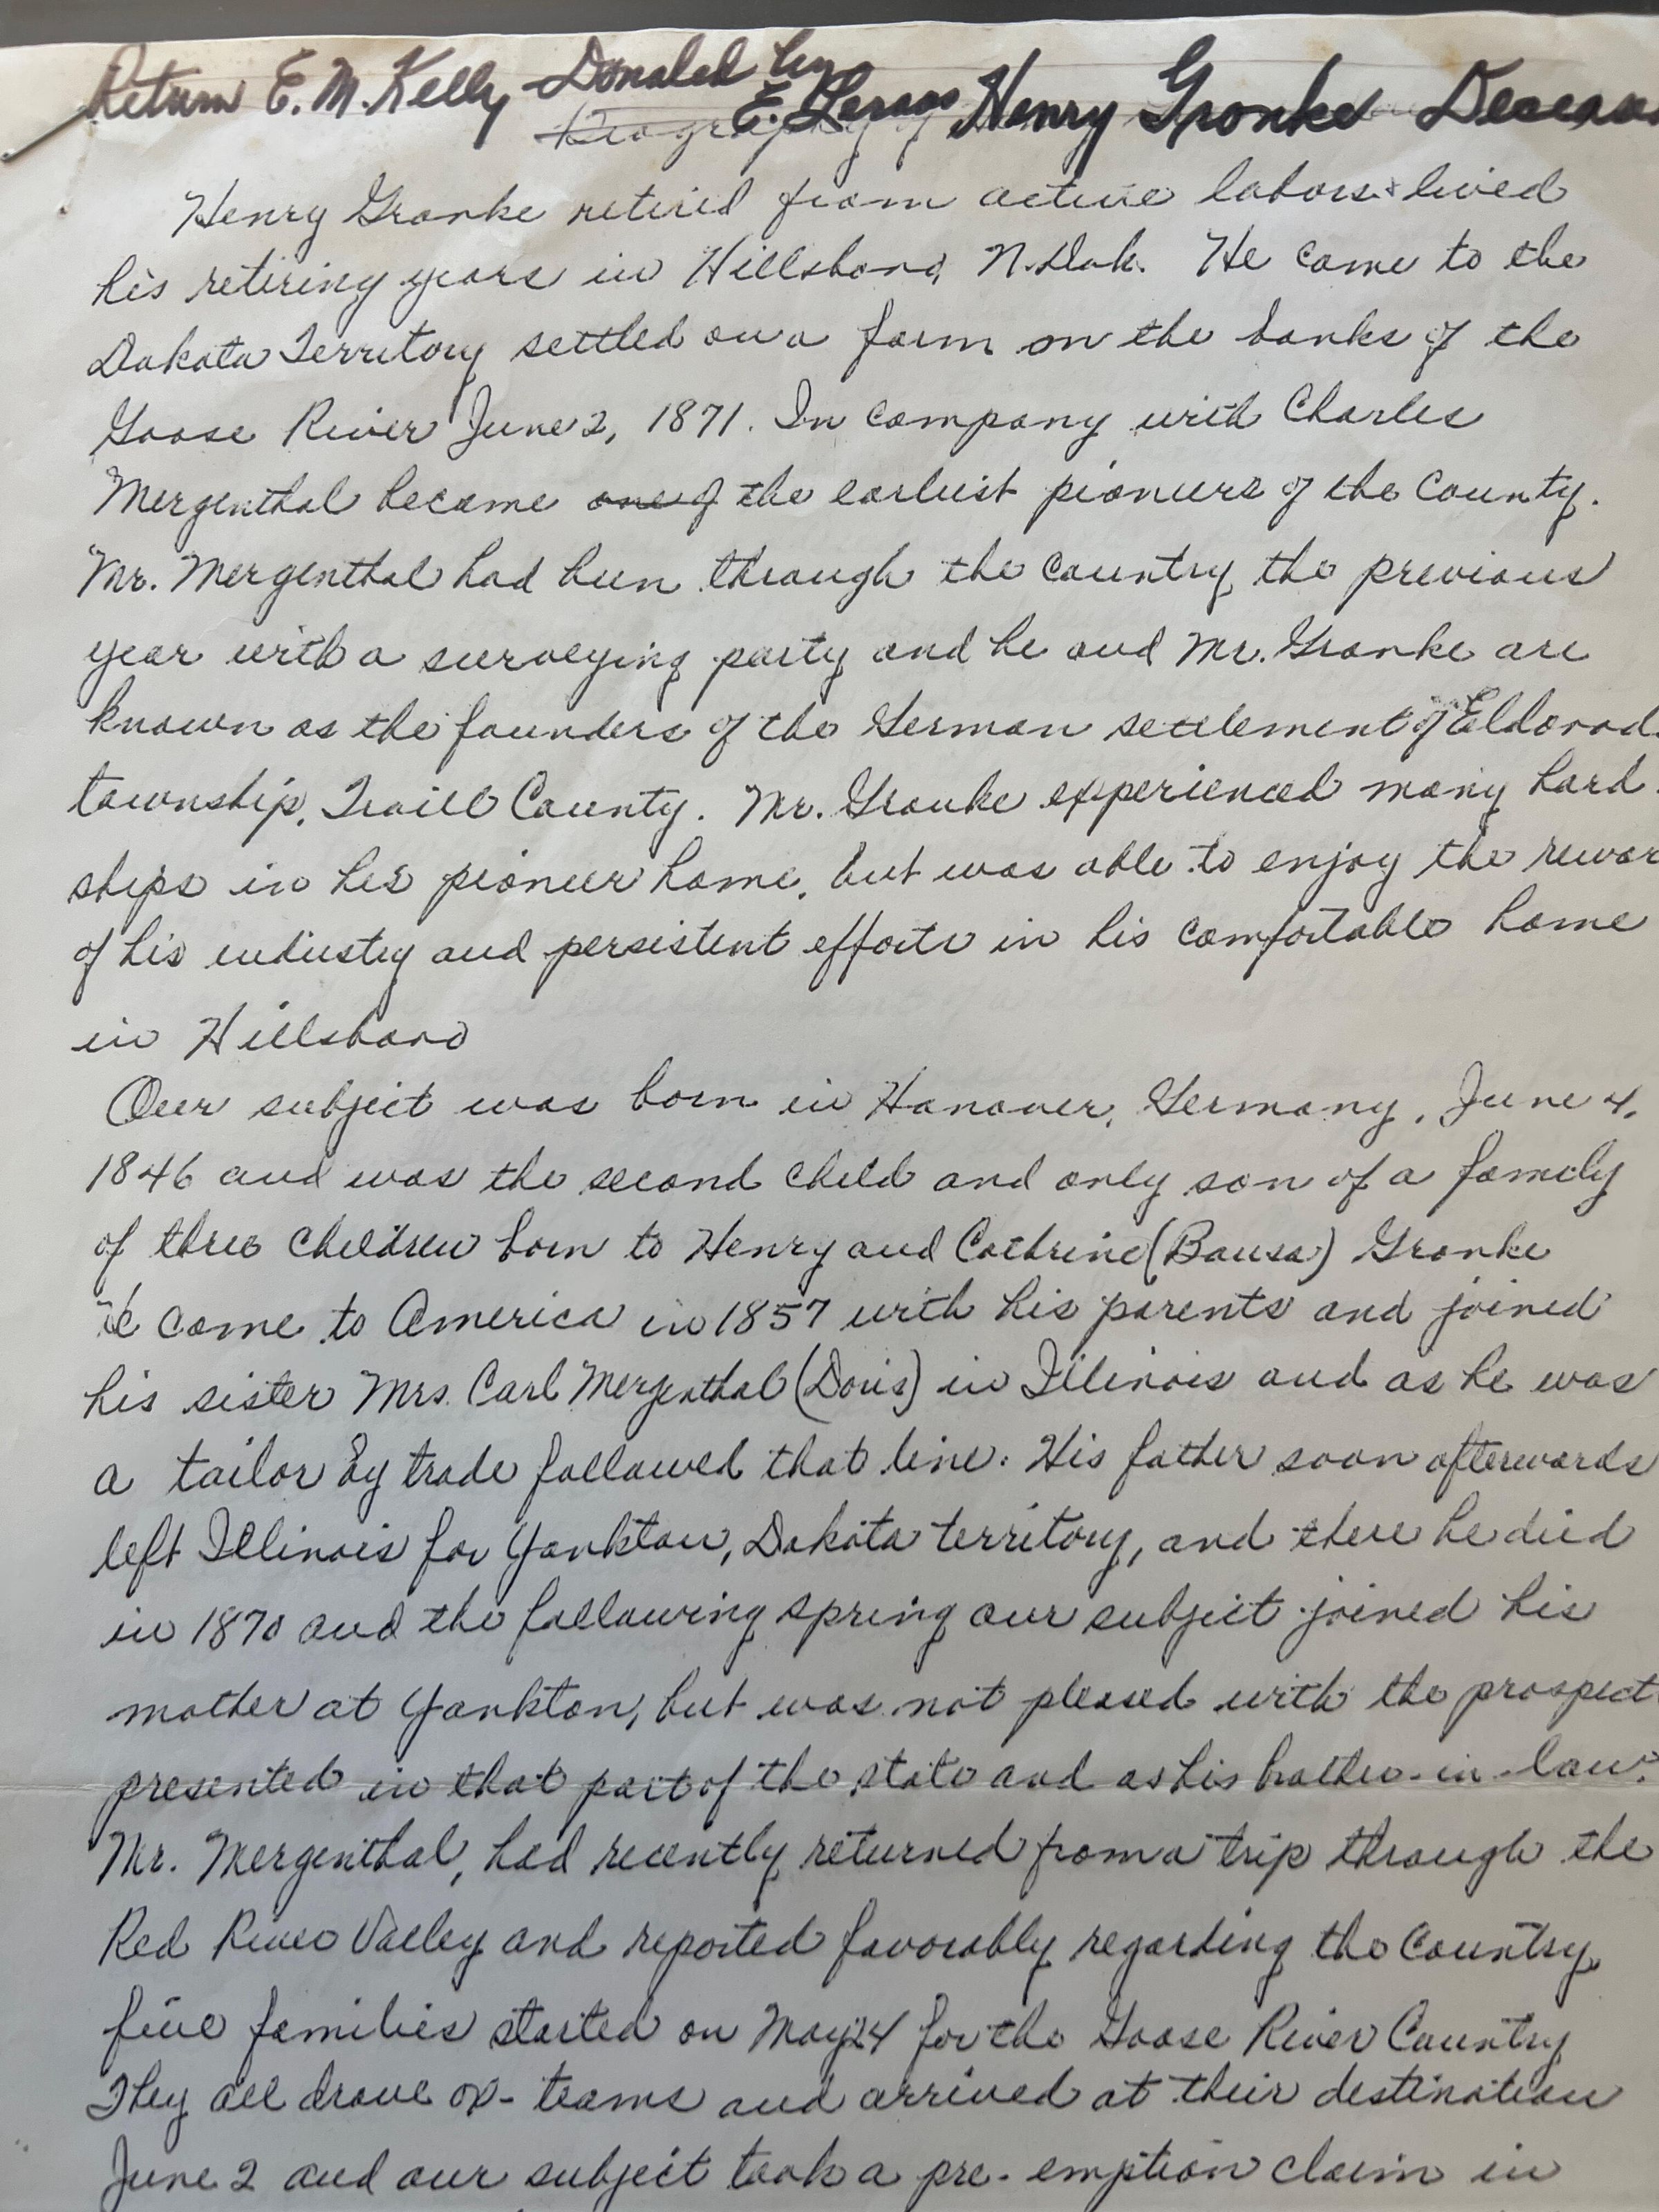 Return E. M. Kelly - Donated by
Biography of E. Henry Gronke Deceas
Henry Gronke retired from active labors & lived
his retiring years in Hillsboro, N. Dak. He came to the
Dakota Territory settled on a farm on the banks of the
Goose River June 2, 1871. In company with Charles
Mergenthal became one of the earliest pioneers of the County.
Mr. Mergenthal had been through the country the previous
year with a surveying party and he and Mr. Gronke are
known as the founders of the German settlement of Eldorad
township, Traill County. Mr. Gronke experienced many hard
ships in his pioneer home, but was able to enjoy the rewar
of his industry and persistent efforts in his comfortable home
in Hillsboro
Our subject was born in Hanover, Germany, June 4,
1846 and was the second child and only son of a family
of three children born to Henry and Cathrine (Bausa) Gronke
He came to America in 1857 with his parents and joined
his sister Mrs. Carl Mergenthal (Doris) in Illinois and as he was
a tailor by trade followed that line. His father soon afterwards
left Illinois for Yankton, Dakota territory, and there he died
in 1870 and the following spring our subject joined his
mother at Yankton, but was not pleased with the prospect
presented in that part of the state and as his brother-in-law.
Mr. Mergenthal, had recently returned from a trip through the
Red River Valley and reported favorably regarding the Country,
five families started on May 24 for the Goose River Country
They all drove ox-teams and arrived at their destination
June 2 and our subject took a pre-emption claim in